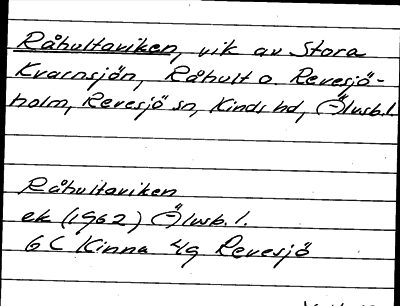 Råhultaviken, vik av Stora
Kvarnsjön, Råhult o. Revesjö-
holm, Revesjö sn, Kinds hd, Älvsb.l.
Råhultaviken
ek (1962) Älvsb.l.
6C Kinna 4g Revesjö